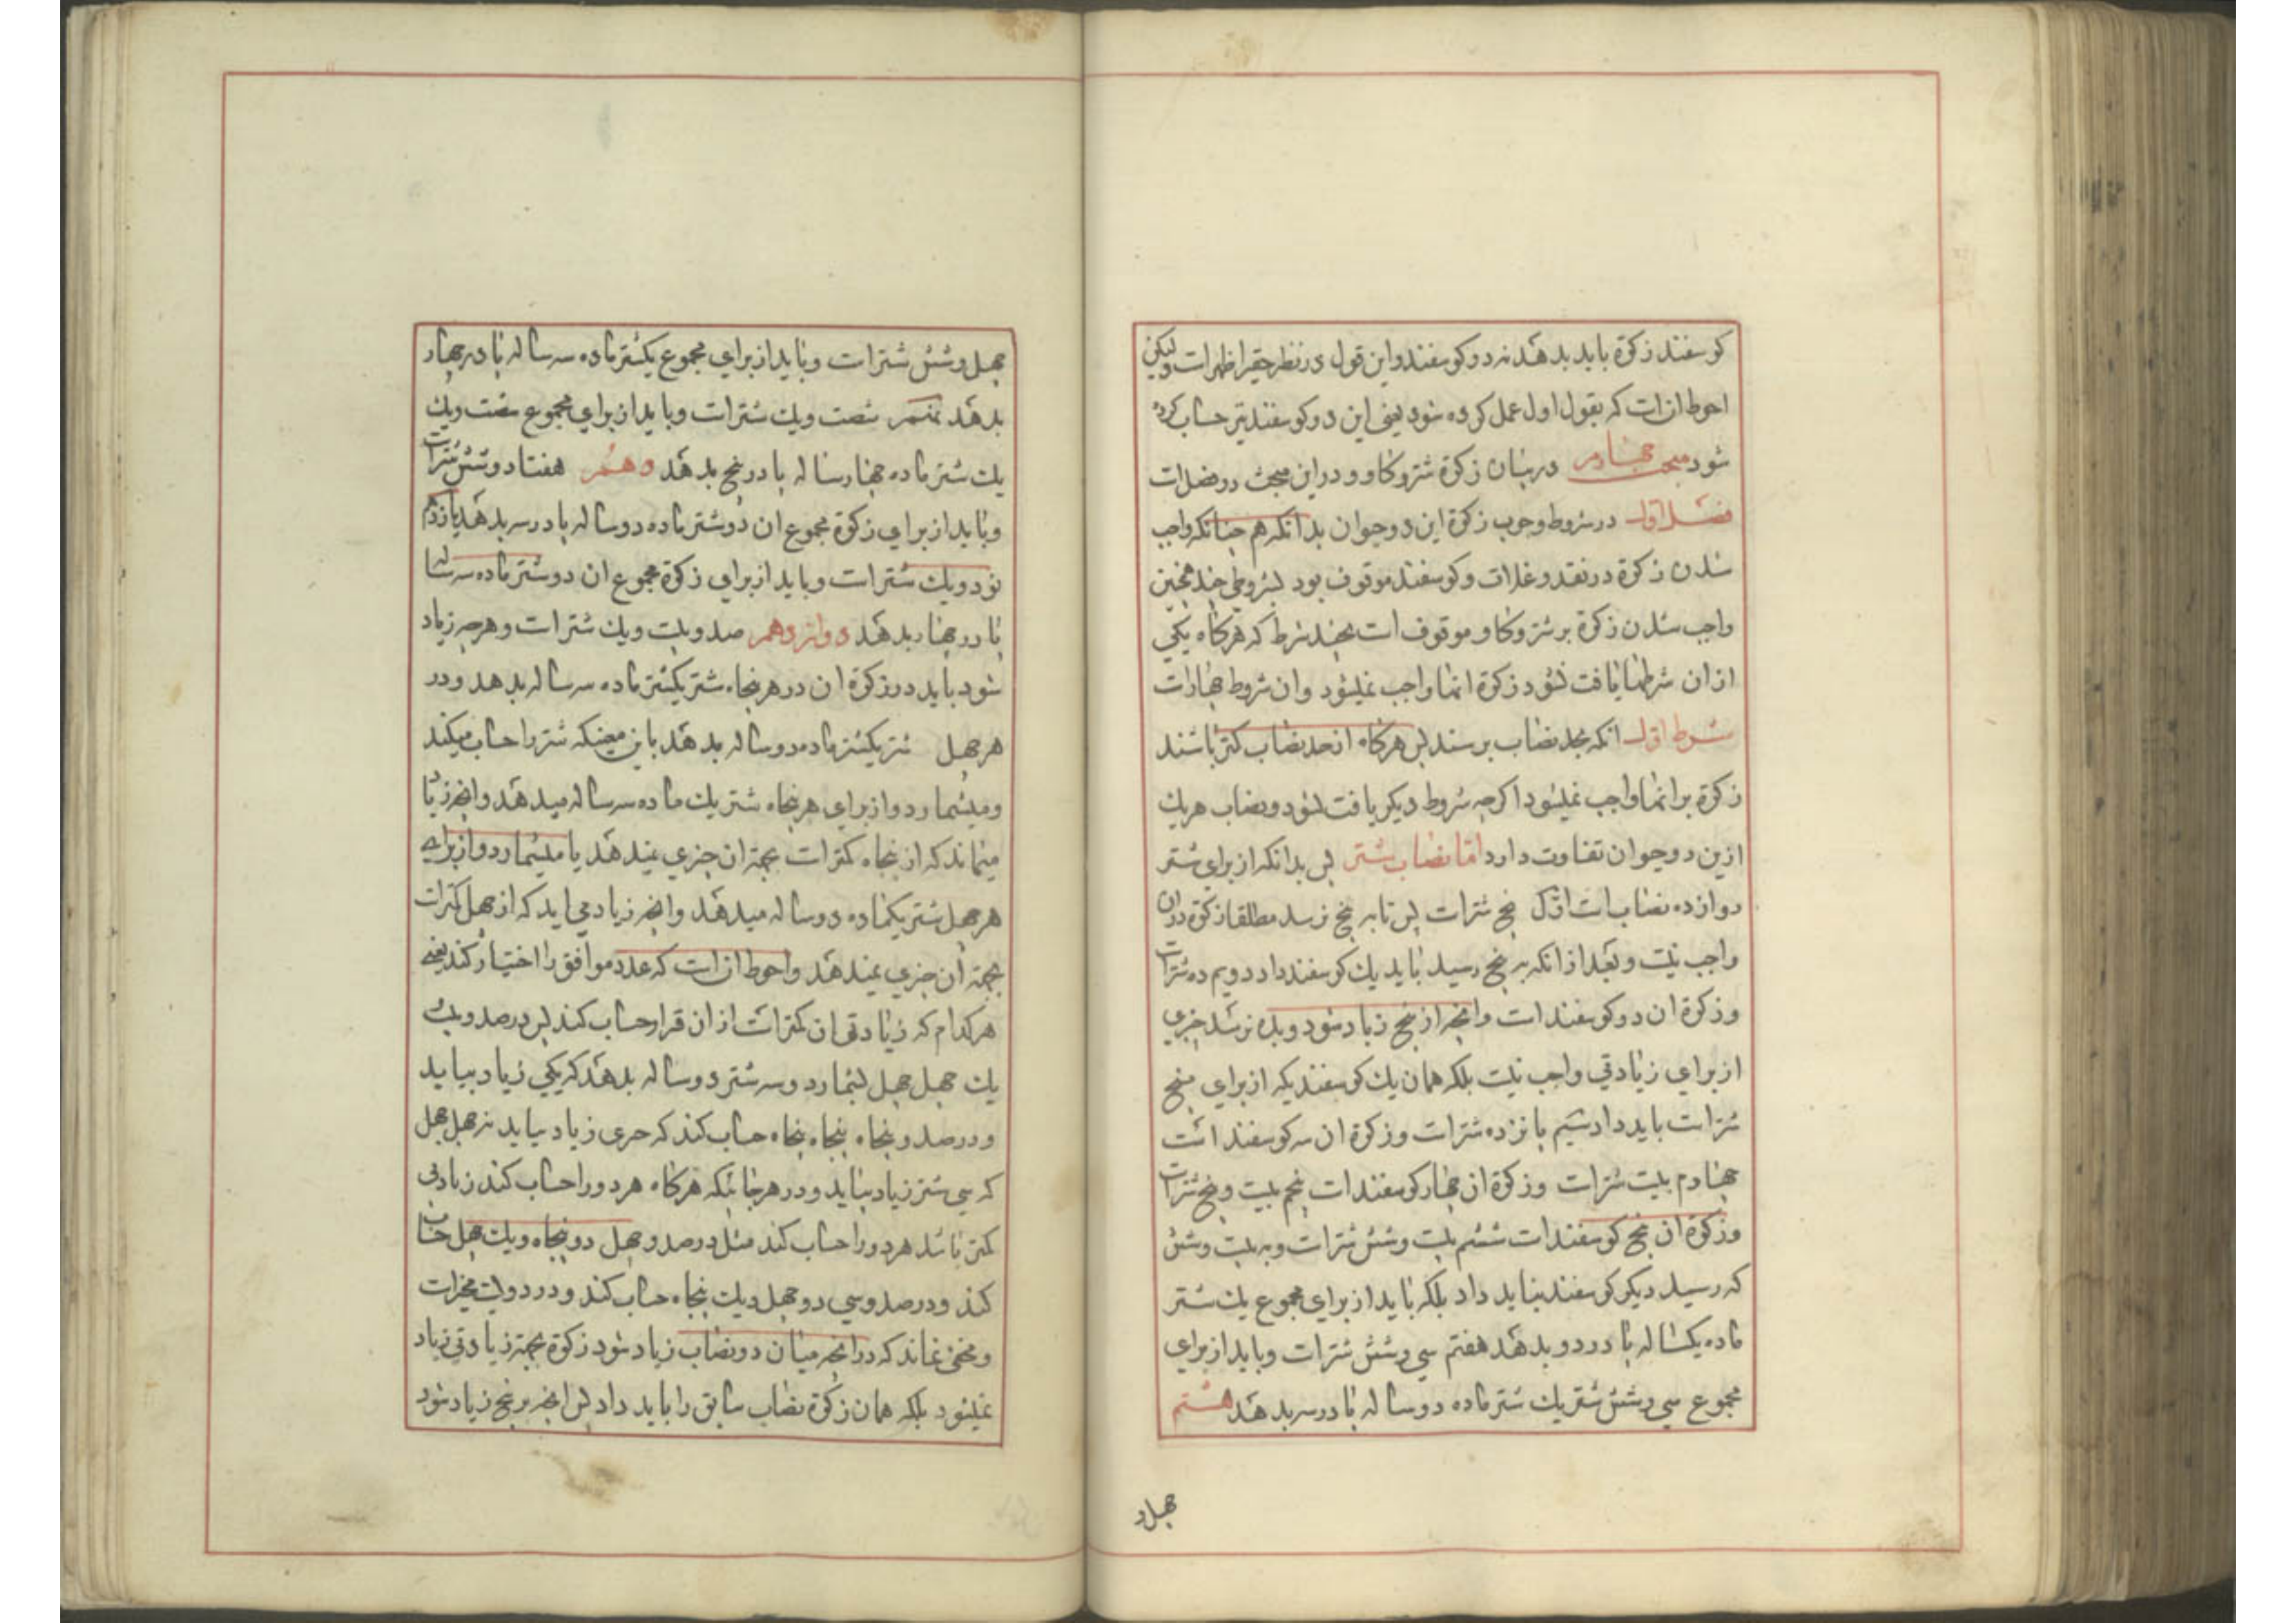 کوسفند زکوة باید بدهد نه دو کوسفند و این قول در نظر حقیر اظهر است ولیکن
احوط ان است که بقول اول عمل کرده شود یعنی این دو کوسفند نیز حساب کرده
شود مبحث چهارم در بیان زکوة شتر و کاو و در این مبحث دو فصل است
فصل اول در شروط وجوب زکوة این دو حیوان بدانکه هم چنانکه واجب
شدن زکوة در نقد و غلات و کوسفند موقوف بود بشروطی چند همچنین
واجب شدن زکوة بر شتر و کاو موقوف است بچند شرط که هرکاه یکی
از ان شرطها یافت نشود زکوة انها واجب نمیشود و ان شروط چهار است
شرط اول انکه بحد نصاب برسند پس هرکاه از حد نصاب کمتر باشند
زکوة بر انها واجب نمیشود اکرچه شروط دیکر یافت شود و نصاب هریك
ازین دو حیوان تفاوت دارد اما نصاب شتر پس بدانکه از برای شتر
دوازده نصاب است اول پنج شتر است پس تا به پنج نرسد مطلقا زکوة در ان
واجب نیست و بعد از انکه به پنج رسید باید یك کوسفند داد دویم ده شتر است
و زکوة ان دو کوسفند است و انچه از پنج زیاد شود و بده نرسد چیزی
از برای زیادتی واجب نیست بلکه همان یك کوسفندیکه از برای پنج
شتر است باید داد سیم پانزده شتر است و زکوة ان سه کوسفند است
چهارم بیست شتر است و زکوة ان چهار کوسفند است پنجم بیست و پنج شتر است
و زکوة ان پنج کوسفند است ششم بیست و شش شتر است و به بیست و شش
که رسید دیکر کوسفند نباید داد بلکه باید از برای مجموع یك شتر
ماده یکساله پا در دو بدهد هفتم سی و شش شتر است و باید از برای
مجموع سی و شش شتر یك شتر ماده دو ساله پا در سه بدهد هشتم
چهل و
چهل و شش شتر است و باید از برای مجموع یکشتر ماده سه ساله پا در چهار
بدهد نهم شصت ویك شتر است و باید از برای مجموع شصت ویك
یك شتر ماده چهار ساله پا در پنج بدهد دهم هفتاد و شش شتر است
و باید از برای زکوة مجموع ان دو شتر ماده دو ساله پا در سه بدهد یازدهم
نود ویك شتر است و باید از برای زکوة مجموع ان دو شتر ماده سه ساله
پا در چهار بدهد دوازدهم صد و بیست ویك شتر است و هرچه زیاد
شود باید در زکوة ان در هر پنجاه شتر یکشتر ماده سه ساله بدهد و در
هر چهل شتر یکشتر ماده دو ساله بدهد باین معنیکه شتر را حساب میکند
و میشمارد و از برای هر پنجاه شتر یك ماده سه ساله میدهد و انچه زیاد
میماند که از پنجاه کمتر است بجهة ان چیزی نمیدهد یا میشمارد و از برای
هر چهل شتر یکماده دو ساله میدهد و انچه زیاد می اید که از چهل کمتر است
بجهة ان چیزی نمیدهد و احوط ان است که عدد موافق را اختیار کند یعنی
هرکدام که زیادتی ان کمتر است از ان قرار حساب کند پس در صد و بیست
یك چهل چهل بشمارد و سه شتر دو ساله بدهد که یکی زیاد بیاید
و در صد و پنجاه پنجاه پنجاه حساب کند که چیزی زیاد نیاید نه چهل چهل
که سی شتر زیاد بیاید و در هر جائیکه هرکاه هر دو را حساب کند زیادتی
کمتر باشد هر دو را حساب کند مثل در صد و چهل دو پنجاه ویك چهل حساب
کند و در صد و سی دو چهل ویك پنجاه حساب کند و در دویست مخیر است
و مخفی نماند که در انچه میان دو نصاب زیاد شود زکوة بجهة زیادتی زیاد
نمیشود بلکه همان زکوة نصاب سابق را باید داد پس انچه بر پنج زیاد شود